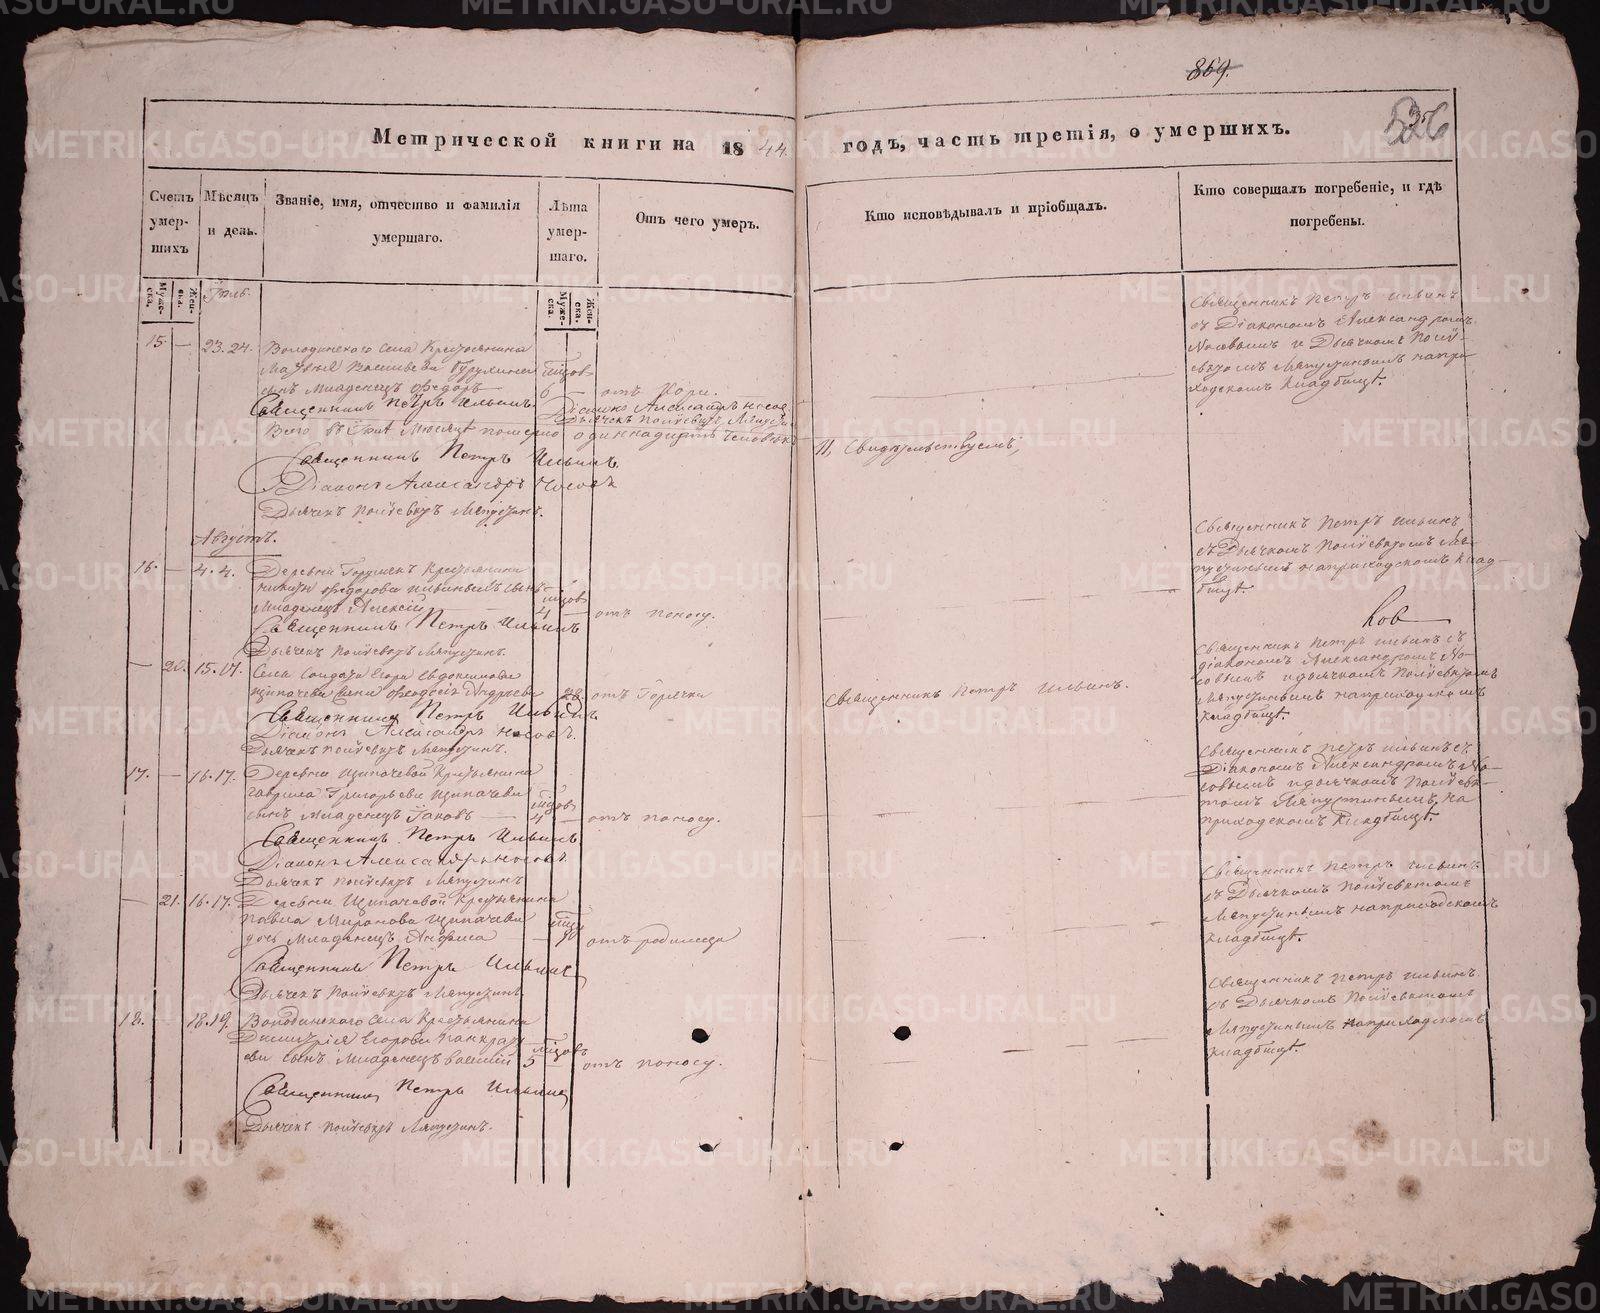 869.
526
Метрической книги на 1844. годъ, часть третія, о умершихъ.
Счетъ умер-шихъ
Мѣсяцъ и день.
Званіе, имя, отчество и фамилія умершаго.
Лѣта умер-шаго.
Отъ чего умеръ.
Кто исповѣдывалъ и пріобщалъ.
Кто совершалъ погребеніе, и гдѣ погребены.
Муже-ска.
Жен-ска.
Муже-ска.
Жен-ска.
Священникъ Петръ Ильинъ
съ Діакономъ Александромъ
Носовымъ и Дьячкомъ Полі-
евктомъ Ляпустинымъ на при-
ходскомъ кладбищѣ.
15 — 23. 24. Володинскаго села крестьянина
Васильева
сынъ младенецъ Ѳедоръ 6 отъ кори.
Священникъ Петръ Ильинъ Діаконъ Александръ Носовъ
Дьячекъ Поліевктъ Ляпустинъ
Всего въ Іюлѣ месяцѣ померло одиннадцать человѣкъ
11, Свидѣтельствуемъ,
Священникъ Петръ Ильинъ.
Діаконъ Александръ Носовъ
Дьячекъ Поліевктъ Ляпустинъ.
Августъ.
16. — 4. 4. Деревни крестьянина
Ѳедорова сынъ
младенецъ Алексій 4 — отъ поносу.
Священникъ Петръ Ильинъ
Дьячекъ Поліевктъ Ляпустинъ.
Священникъ Петръ Ильинъ
съ Дьячкомъ Поліевктомъ Ля-
пустинымъ на приходскомъ клад-
бищѣ.
— 20. 15. 17. Села солдата Егора Евдокимова
Щипачева жена Ѳеодосія Андреева 28 отъ горячки
Священникъ Петръ Ильинъ.
Священникъ Петръ Ильинъ
Діаконъ Александръ Носовъ.
Дьячекъ Поліевктъ Ляпустинъ.
Священникъ Петръ Ильинъ съ
діакономъ Александромъ Но-
совымъ и дьячкомъ Поліевктомъ
Ляпустинымъ на приходскомъ
кладбищѣ.
17. — 16. 17. Деревни Щипачевой крестьянина
Гаврила Григорьева Щипачева
сынъ младенецъ Іаковъ — 4 — отъ поносу.
Священникъ Петръ Ильинъ
Діаконъ Александръ Носовъ.
Дьячекъ Поліевктъ Ляпустинъ
Священникъ Петръ Ильинъ съ
Діакономъ Александромъ Но-
совымъ и дьячкомъ Поліевк-
томъ Ляпустинымъ, на
приходскомъ кладбищѣ.
— 21. 16. 17. Деревни Щипачевой крестьянина
Павла Миронова Щипачева
дочь младенецъ Анфиса — отъ родимца
Священникъ Петръ Ильинъ
Дьячекъ Поліевктъ Ляпустинъ.
Священникъ Петръ Ильинъ
съ Дьячкомъ Поліевктомъ
Ляпустинымъ на приходскомъ
кладбищѣ.
18. — 18. 19. Володинскаго села крестьянина
Димитрія Егорова Панкрать-
ева сынъ младенецъ Василій 5 — отъ поносу.
Священникъ Петръ Ильинъ
Дьячекъ Поліевктъ Ляпустинъ.
Священникъ Петръ Ильинъ
съ Дьячкомъ Поліевктомъ
Ляпустинымъ на приходскомъ
кладбищѣ.
METRIKI.GASO-URAL.RU